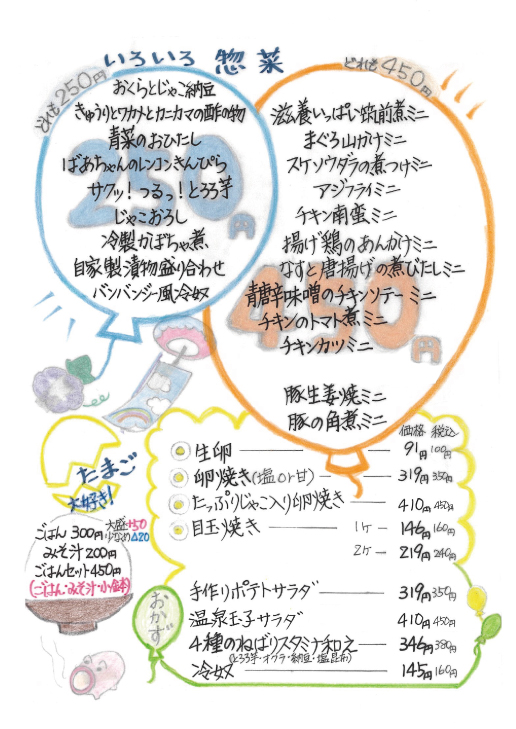 いろいろ 惣菜
どれも250円
おくらとじゃこ納豆
きゅうりとワカメとカニカマの酢の物
青菜のおひたし
ばあちゃんのレンコンきんぴら
サクッ!つるっ!とろろ芋
じゃこおろし
冷製かぼちゃ煮
自家製漬物盛り合わせ
バンバンジー風冷奴
250円
どれも450円
滋養いっぱい筑前煮ミニ
まぐろ山かけミニ
スケソウダラの煮つけミニ
アジフライミニ
チキン南蛮ミニ
揚げ鶏のあんかけミニ
なすと唐揚げの煮びたしミニ
青唐辛味噌のチキンソテーミニ
チキンのトマト煮ミニ
チキンカツミニ
豚生姜焼ミニ
豚の角煮ミニ
450円
たまご
大好き!
価格 税込
生卵 91円 100円
卵焼き(塩or甘) 319円 350円
たっぷりじゃこ入り卵焼き 410円 450円
目玉焼き 1ケ 146円 160円
2ケ 219円 240円
ごはん 300円 大盛+50 少なめ△20
みそ汁 200円
ごはんセット 450円
(ごはん・みそ汁・小鉢)
おかず
手作りポテトサラダ 319円 350円
温泉玉子サラダ 410円 450円
4種のねばりスタミナ和え 346円 380円
(とろろ芋・オクラ・納豆・塩昆布)
冷奴 145円 160円